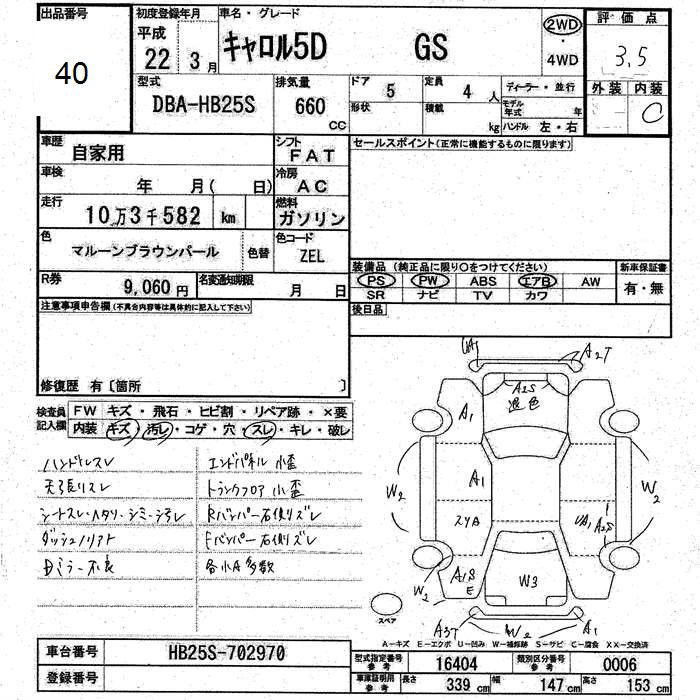 出品番号
40
初度登録年月
平成
22年3月
車名・グレード
キャロル5D GS
2WD
・
4WD
評価点
3.5
外装 内装
C
型式
DBA-HB25S
排気量
660
CC
ドア 5
定員 4人
形状
積載 kg
ディーラー・並行
モデル年式 年
ハンドル 左・右
車歴 自家用
シフト FAT
セールスポイント(正常に機能するものに限ります)
車検 年 月( 日)
冷房 AC
走行 10万3千582 km
燃料 ガソリン
色 マルーンブラウンパール 色替
色コード ZEL
R券 9,060円
名変通知期限 月 日
装備品(純正品に限り○をつけてください)
PS PW ABS エアB AW
SR ナビ TV カワ
新車保証書
有・無
後日品
注意事項申告欄(不具合内容等は具体的に記入して下さい)
修復歴 有〔箇所 〕
検査員記入欄
FW キズ・飛石・ヒビ割・リペア跡・×要
内装 キズ・汚レ・コゲ・穴・スレ・キレ・破レ
ハンドルスレ
天張リスレ
シートスレ・ヘタリ・シミ・
エンドパネル小歪
トランクフロア小歪
Rバンパー右側リズレ
Fバンパー右側リズレ
各小A多数
UA1
A2T
A2S
退色
A1
A1
W2
W2
UA1
A2S
W2
A1S
E
W3
A3T
W2
A1
スペア
A-キズ E-エクボ U-凹み W-補修跡 S-サビ C-腐食 XX-交換済
車台番号 HB25S-702970
登録番号
型式指定番号 参考 16404
類別区分番号 参考 0006
車庫証明用 参考 長さ 339 cm 幅 147 cm 高さ 153 cm